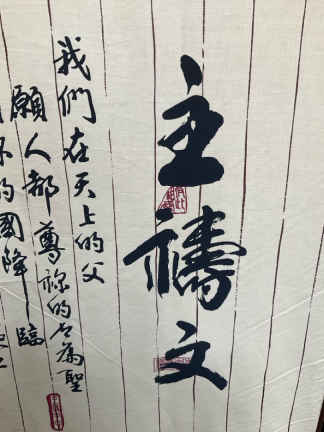 主禱文
我們在天上的父
願人都尊祢的名為聖
的國降臨